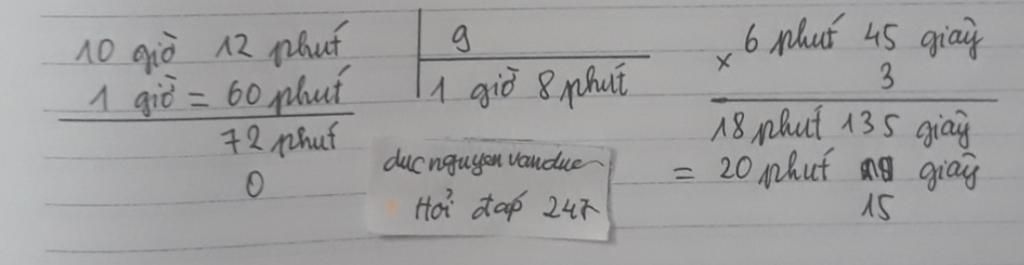 10 giờ 12 phút
1 giờ = 60 phút
72 phút
0
9
1 giờ 8 phút
ducnguyenvanduc
Hỏi đáp 247
x 6 phút 45 giây
3
18 phút 135 giây
= 20 phút giây
15